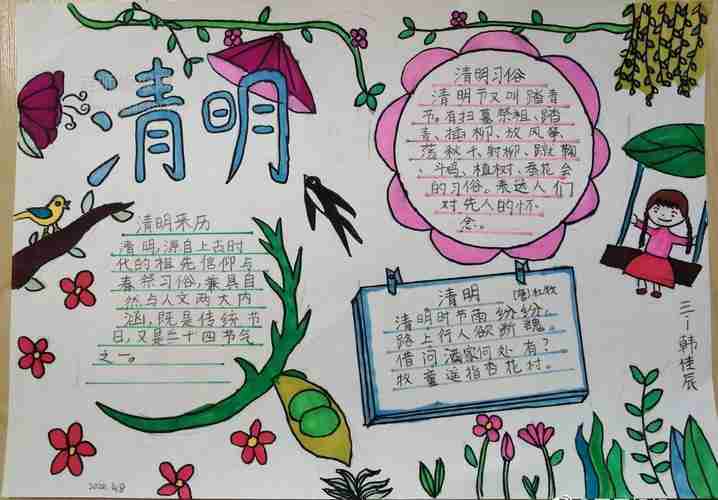 清明
清明来历
清明,源自上古时
代的祖先信仰与
春祭习俗,兼具自
然与人文两大内
涵,既是传统节
日,又是二十四节气
之一。
清明习俗
清明节又叫踏青
节。有扫墓祭祖、踏
青、插柳、放风筝、
荡秋千、射柳、蹴鞠
、斗鸡、植树、蚕花会
的习俗。表达人们
对先人的怀
念。
清明 [唐]杜牧
清明时节雨纷纷,
路上行人欲断魂。
借问酒家何处有?
牧童遥指杏花村。
三-1韩佳辰